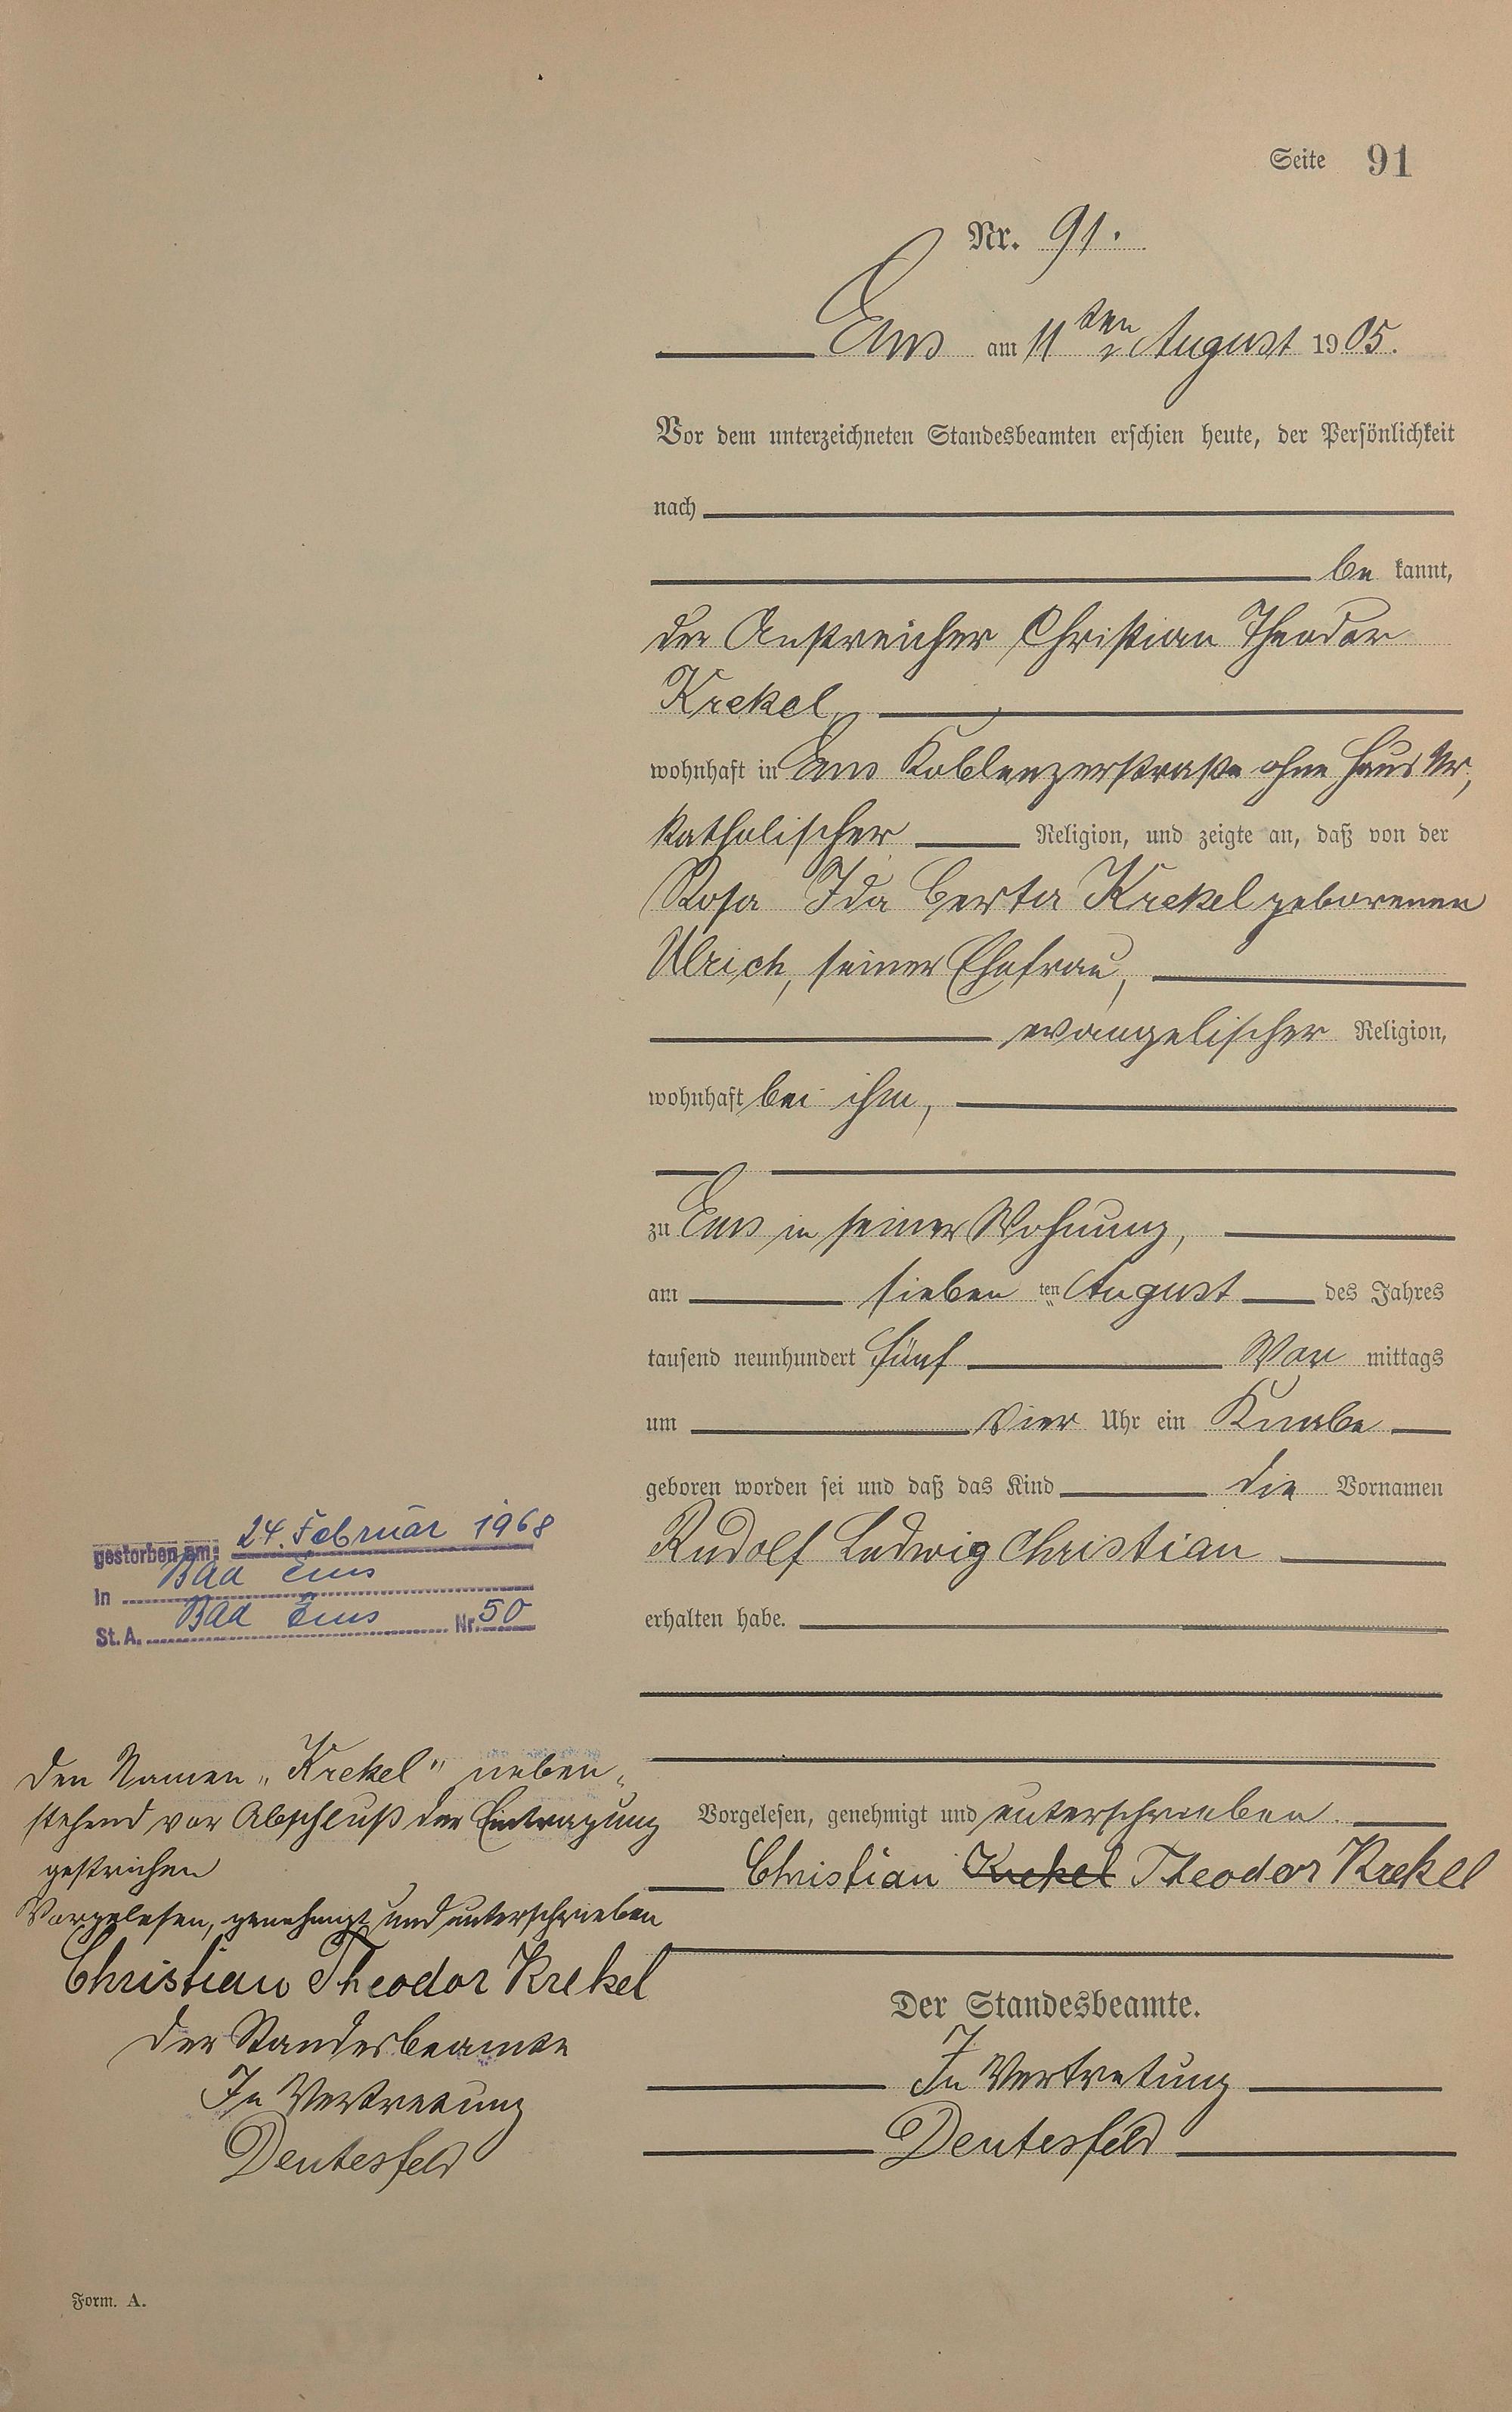 Seite 91
Nr. 91.
Ems am 11ten August 1905.
Vor dem unterzeichneten Standesbeamten erschien heute, der Persönlichkeit
nach
be kannt,
der Anstreicher Christian Theodor
Krekel,
wohnhaft in Ems Koblenzerstraße ohne Haus Nr,
katholischer Religion, und zeigte an, daß von der
Rosa Ida Berta Krekel geborenen
Ulrich, seiner Ehefrau,
evangelischer Religion,
wohnhaft bei ihm,
zu Ems in seiner Wohnung,
am sieben ten August des Jahres
tausend neunhundert fünf Vor mittags
um vier Uhr ein Knabe
geboren worden sei und daß das Kind die Vornamen
Rudolf Ludwig Christian
erhalten habe.
Vorgelesen, genehmigt und unterschrieben.
Christian Krekel Theodor Krekel
Der Standesbeamte.
In Vertretung
Deutesfeld
gestorben am: 24. Februar 1968
in Bad Ems
St. A. Bad Ems Nr. 50
Den Namen „Krekel" neben-
stehend vor Abschluß der Eintragung
gestrichen
Vorgelesen, genehmigt und unterschrieben
Christian Theodor Krekel
Der Standesbeamte
In Vertretung
Deutesfeld
Form. A.